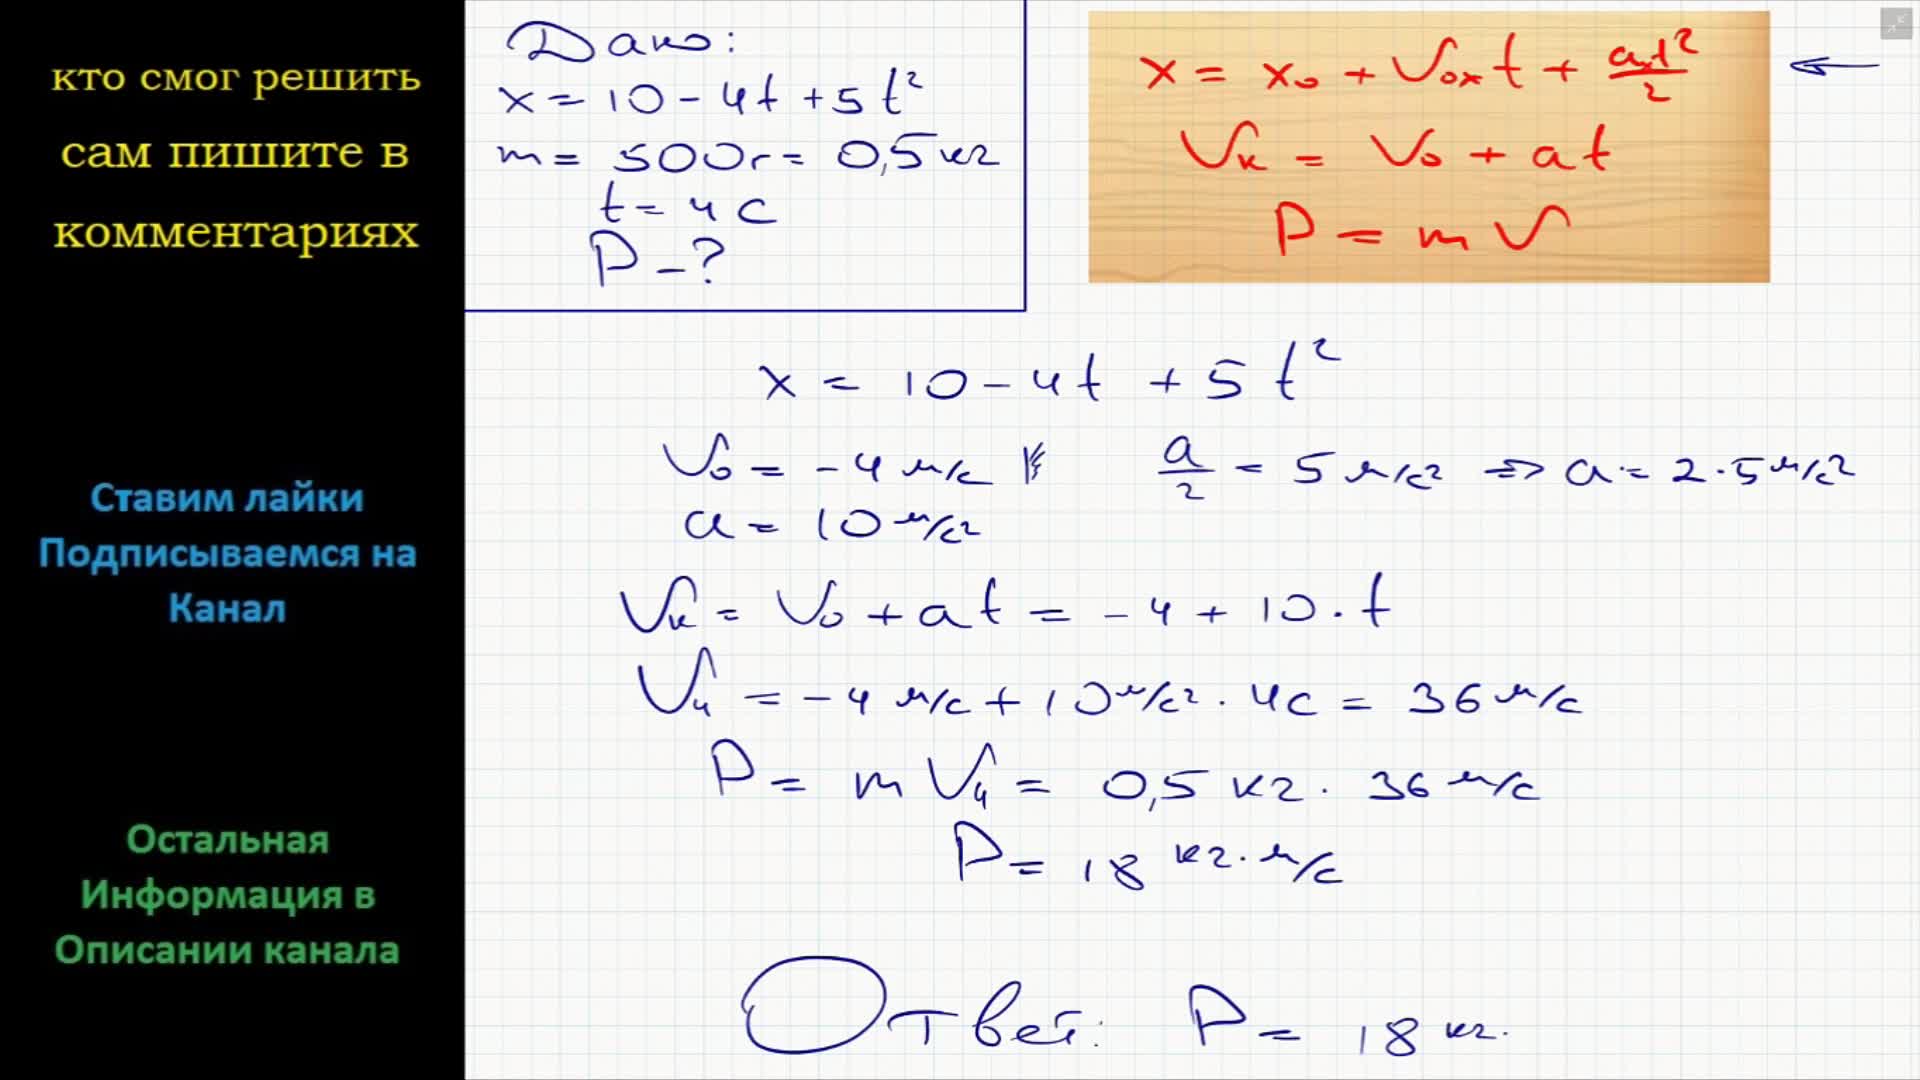 кто смог решить
сам пишите в
комментариях
Ставим лайки
Подписываемся на
Канал
Остальная
Информация в
Описании канала
Дано:
x = 10 - 4t + 5t²
m = 500г = 0,5 кг
t = 4 с
P - ?
x = x₀ + V₀ₓt + aₓt²/2
Vк = V₀ + at
P = mV
x = 10 - 4t + 5t²
V₀ = -4 м/с a/2 = 5 м/с² => a = 2·5 м/с²
a = 10 м/с²
Vк = V₀ + at = -4 + 10·t
V₄ = -4 м/с + 10 м/с² · 4с = 36 м/с
P = mV₄ = 0,5 кг · 36 м/с
P = 18 кг·м/с
Ответ: P = 18 кг·